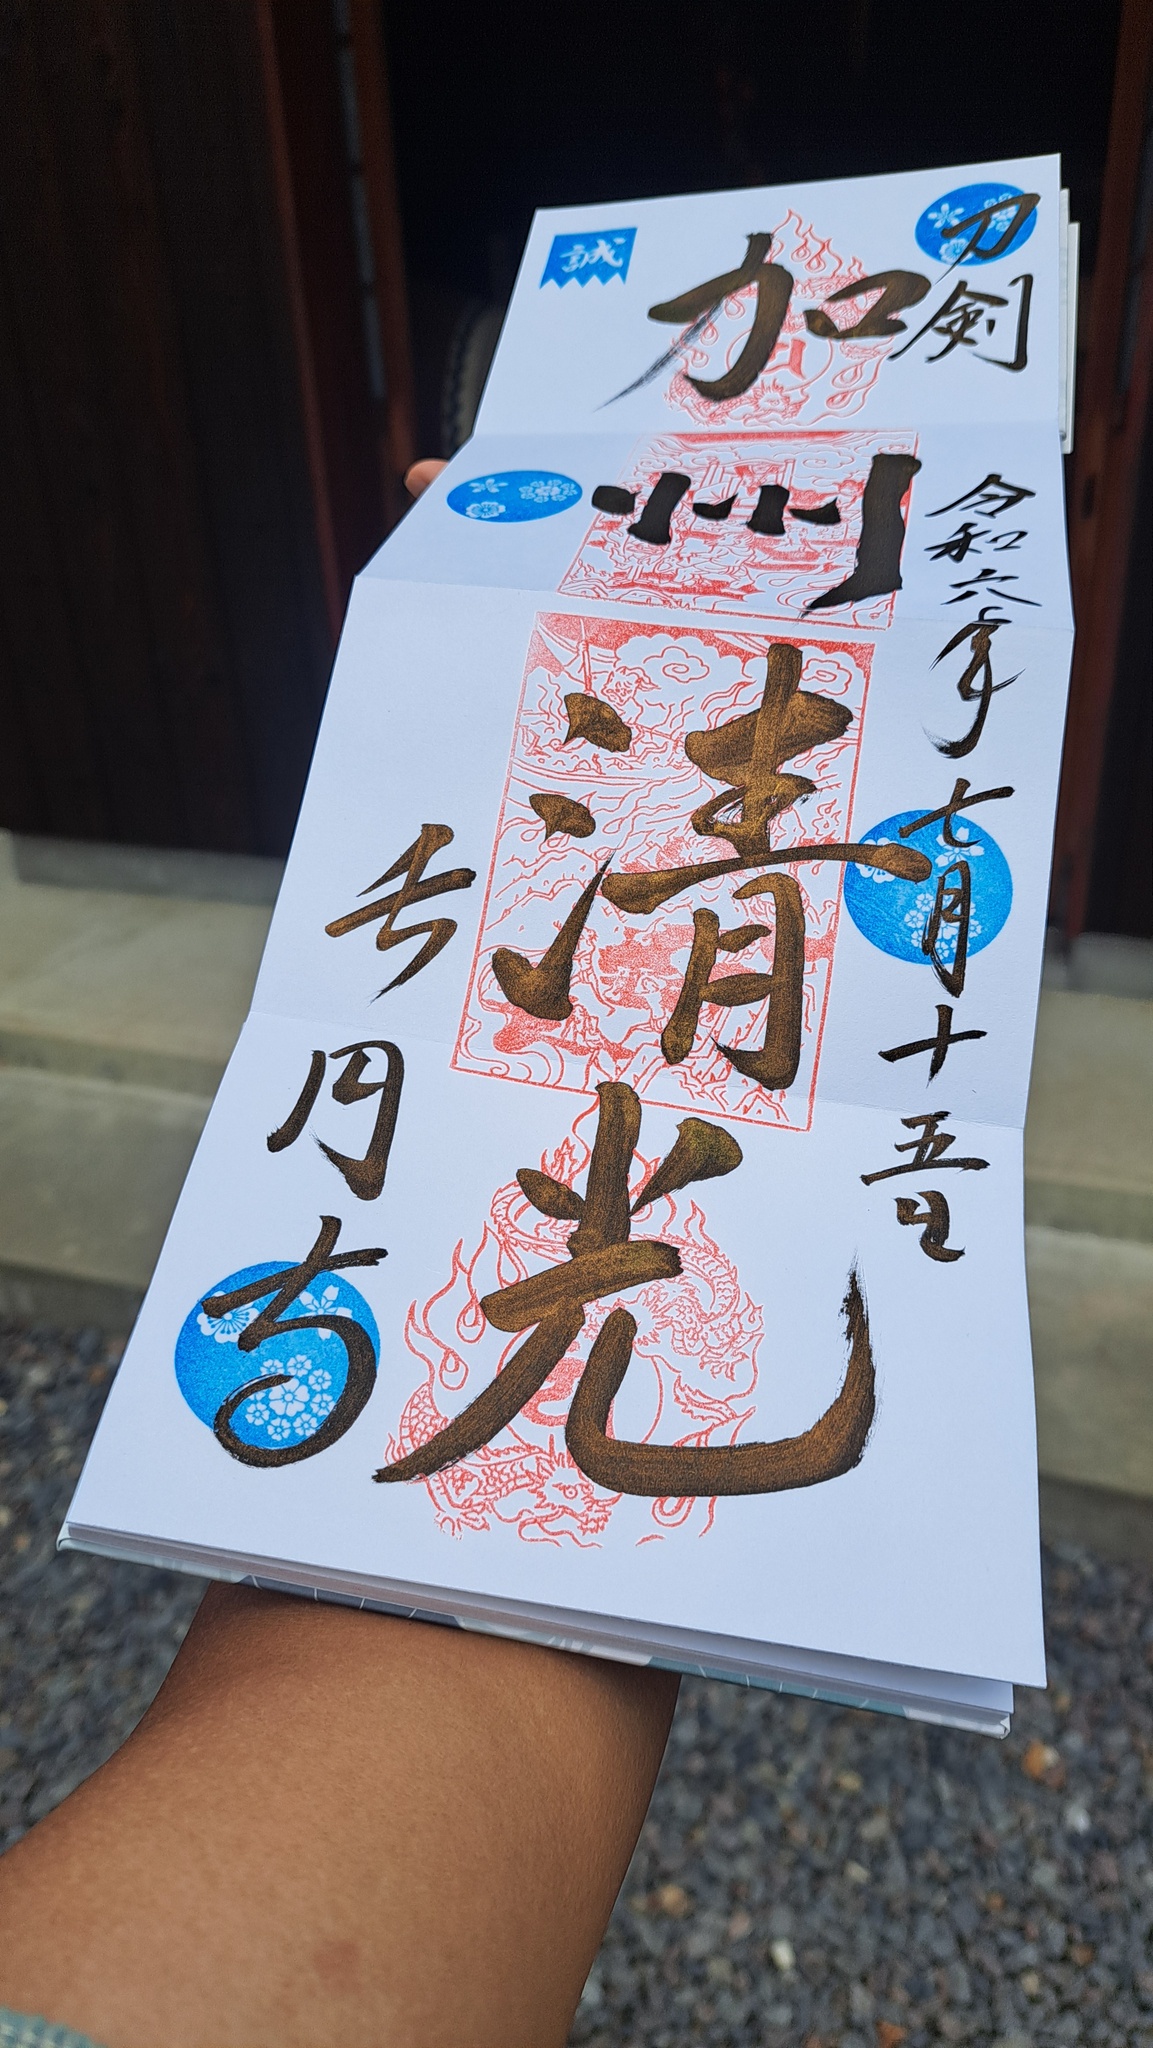 刀剣
令和六年七月十五日
加州清光
長円寺
誠